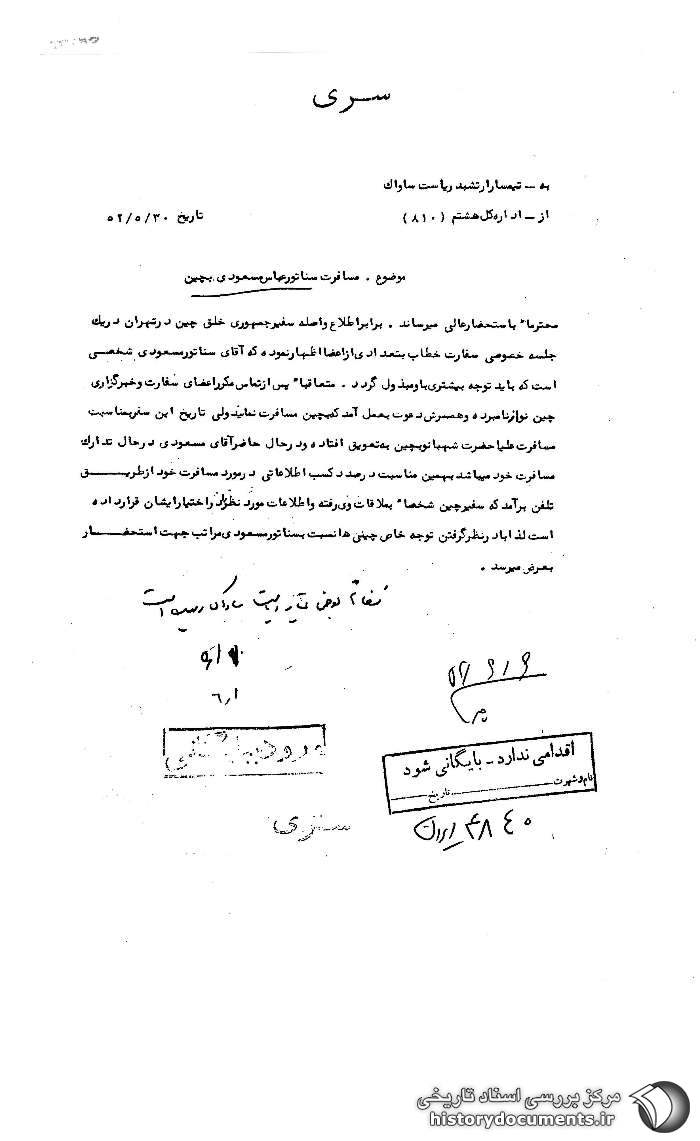 سری
به - تیمسار ارتشبد ریاست ساواک
از - اداره کل هشتم (۸۱۰) تاریخ ۵۲/۵/۳۰
موضوع . مسافرت سناتور عباس مسعودی بچین
محترما" باستحضار عالی میرساند . برابر اطلاع واصله سفیر جمهوری خلق چین در تهران در یک
جلسه خصوصی سفارت خطاب بتعدادی از اعضا اظهار نموده که آقای سناتور مسعودی شخصی
است که باید توجه بیشتری باو مبذول گردد . متعاقبا" پس از تماس مکرر اعضای سفارت و خبرگزاری
چین نوازنامبرده و همسرش دعوت بعمل آمد که بچین مسافرت نمایند ولی تاریخ این سفر بمناسبت
مسافرت علیاحضرت شهبانو بچین به تعویق افتاده و در حال حاضر آقای مسعودی در حال تدارک
مسافرت خود میباشد بهمین مناسبت در صدد کسب اطلاعاتی در مورد مسافرت خود از طریق
تلفن برآمد که سفیر چین شخصا" بملاقات وی رفته و اطلاعات مورد نظر را در اختیار ایشان قرار داده
است لذا با در نظر گرفتن توجه خاص چینی ها نسبت به سناتور مسعودی مراتب جهت استحضار
بعرض میرسد .
۶/۱
۵۲/۶/۶
اقدامی ندارد - بایگانی شود
نام و شهرت تاریخ
سری
۴۸۴۰
مرکز بررسی اسناد تاریخی
historydocuments.ir